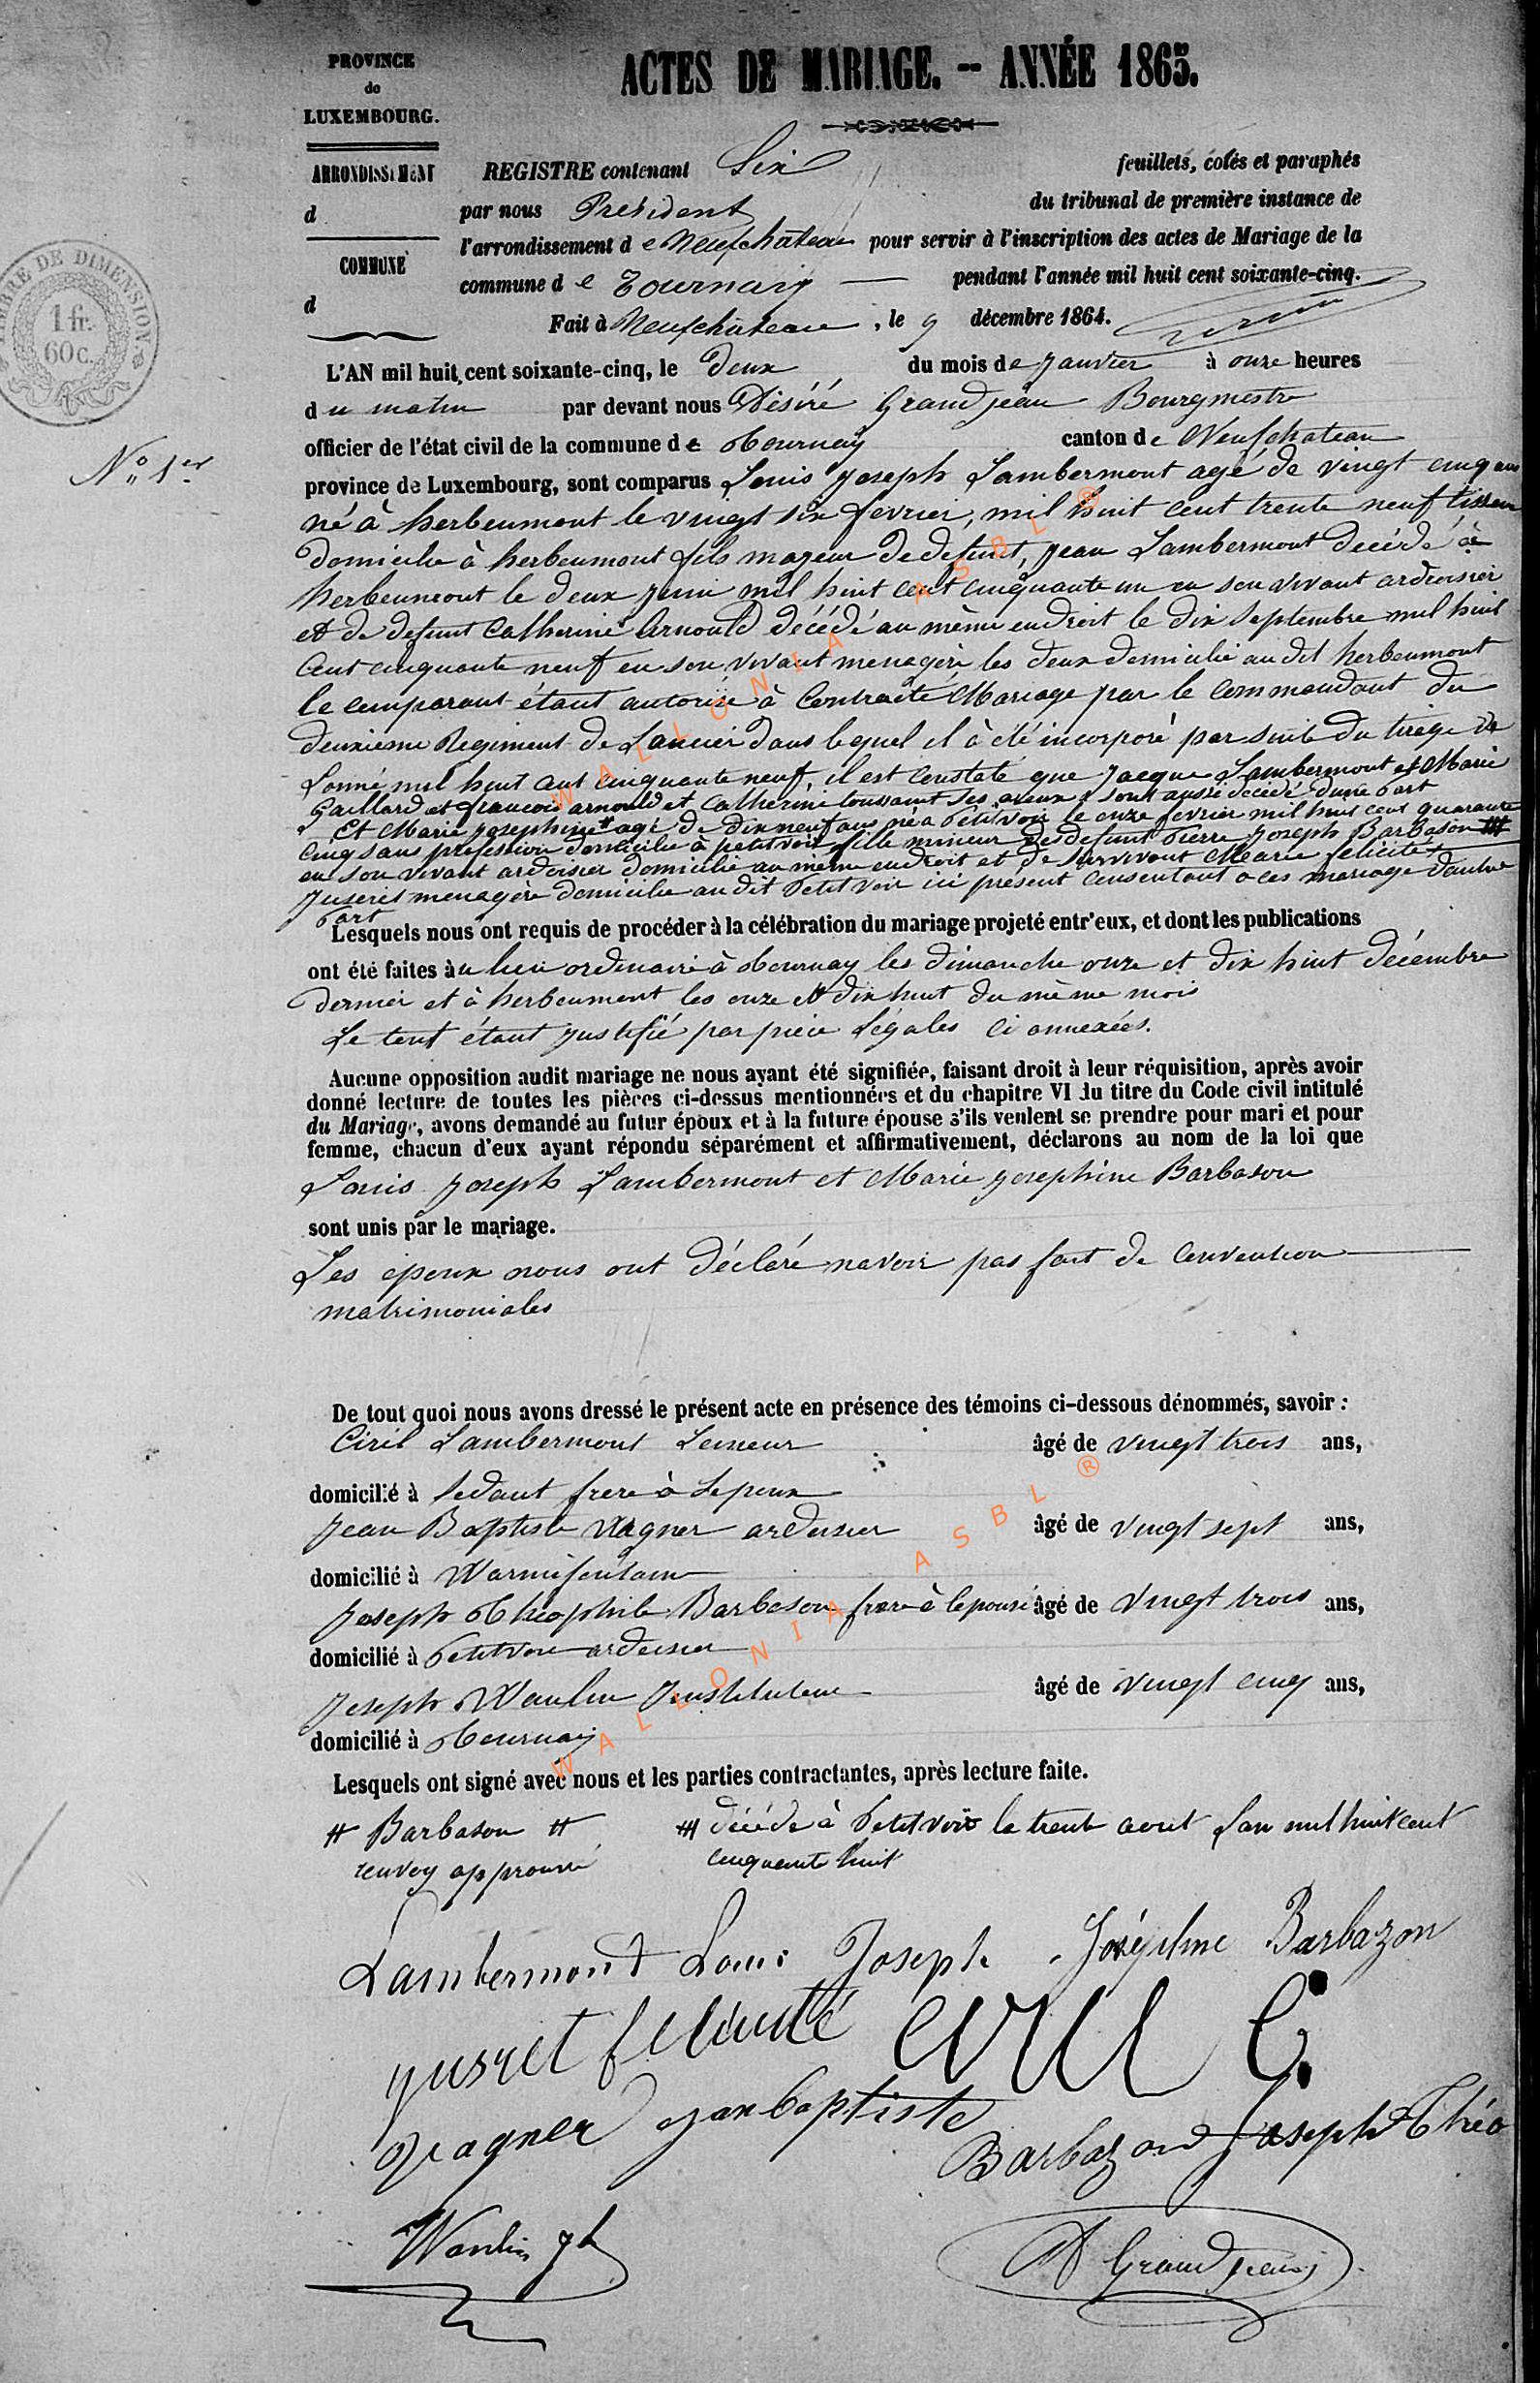 PROVINCE
de
LUXEMBOURG.
ARRONDISSEMENT
d
COMMUNE
d
ACTES DE MARIAGE. -- ANNÉE 1865.
REGISTRE contenant Six feuillets, cotés et paraphés
par nous President du tribunal de première instance de
l'arrondissement de Neufchateau pour servir à l'inscription des actes de Mariage de la
commune de Tournay pendant l'année mil huit cent soixante-cinq.
Fait à Neufchateau, le 9 décembre 1864.
TIMBRE DE DIMENSION
1 fr.
60 c.
No 1er
L'AN mil huit cent soixante-cinq, le deux du mois de Janvier à onze heures
du matin par devant nous Désiré Grandjean Bourgmestre
officier de l'état civil de la commune de Tournay canton de Neufchateau
province de Luxembourg, sont comparus Louis Joseph Lambermont agé de vingt cinq ans
né à herbeumont le vingt six fevrier, mil huit cent trente neuf tisseur
domicilie à herbeumont fils majeur de defunt, Jean Lambermont decédé à
herbeumont le deux Juin mil huit cent cinquante un en son vivant ardoisier
et de defunt Catherine Arnould décédé au même endroit le dix Septembre mil huit
Cent cinquante neuf en son vivant menagère les deux domicilié au dit herbeumont
le comparant étant autorisé à Contracté Mariage par le Commandant du
deuxieme Regiment de Lancier dans lequel il à été incorporé par suite du tirage de
Lonné mil huit cent cinquante neuf, il est Constaté que Jacque Lambermont et Marie
Gaillard et francois arnould et Catherine toussaint ses aieux sont aussie décédé d'une part
Et Marie Josephine # agé de dix neuf ans né a Petitvoir le onze fevrier mil huit cent quarante
Cinq sans profession domicilie à petitvoir fille mineur de defunt Pierre Joseph Barbason ##
en son vivant ardoisier domicilié au même endroit et de survivant Marie felicité
Juseret menagère domicilie au dit Petit voir ici présent Consentant a ces mariage d'autre
Part
Lesquels nous ont requis de procéder à la célébration du mariage projeté entr'eux, et dont les publications
ont été faites au lieu ordinaire à Tournay les dimanche onze et dix huit décembre
dernier et à herbeumont les onze et dix huit du même mois
Le tout étant justifié par pièce légales Ci annexées.
Aucune opposition audit mariage ne nous ayant été signifiée, faisant droit à leur réquisition, après avoir
donné lecture de toutes les pièces ci-dessus mentionnées et du chapitre VI du titre du Code civil intitulé
du Mariage, avons demandé au futur époux et à la future épouse s'ils veulent se prendre pour mari et pour
femme, chacun d'eux ayant répondu séparément et affirmativement, déclarons au nom de la loi que
Louis Joseph Lambermont et Marie Josephine Barbason
sont unis par le mariage.
Les epoux nous ont déclaré navoir pas fait de Convention
matrimoniales
De tout quoi nous avons dressé le présent acte en présence des témoins ci-dessous dénommés, savoir :
Ciril Lambermont âgé de vingt trois ans,
domicilié à Sedant frere à Lepoux
Jean Baptiste Wagner ardoisier âgé de vingt sept ans,
domicilié à Warmifontain
Joseph Théophile Barbason frere à lepouse âgé de Vingt trois ans,
domicilié à Petitvoir ardoisier
Joseph Wanlin Instituteur âgé de vingt cinq ans,
domicilié à Tournay
Lesquels ont signé avec nous et les parties contractantes, après lecture faite.
# Barbason # ## décédé à Petit voir le trente aout Lan mil huit cent
renvoy approuvé cinquante huit
Lambermont Loui Joseph Joséphine Barbazon
Jusret felicité Ciril C.
Wagner Jan baptiste
Barbazon Joseph Théo
Wanlin Jh
D Grandjean
WALLONIA ASBL ®
WALLONIA ASBL ®